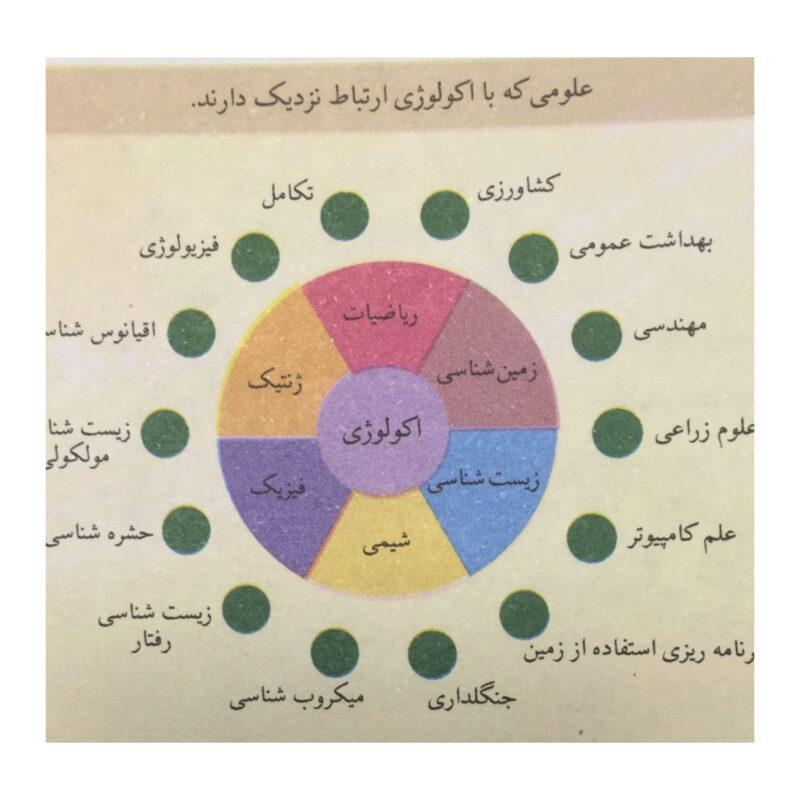 علومی که با اکولوژی ارتباط نزدیک دارند.
کشاورزی
تکامل
بهداشت عمومی
فیزیولوژی
مهندسی
اقیانوس شناس
علوم زراعی
زیست شنا
مولکولی
علم کامپیوتر
حشره شناسی
رنامه ریزی استفاده از زمین
زیست شناسی
رفتار
جنگلداری
میکروب شناسی
ریاضیات
زمین شناسی
ژنتیک
اکولوژی
زیست شناسی
فیزیک
شیمی